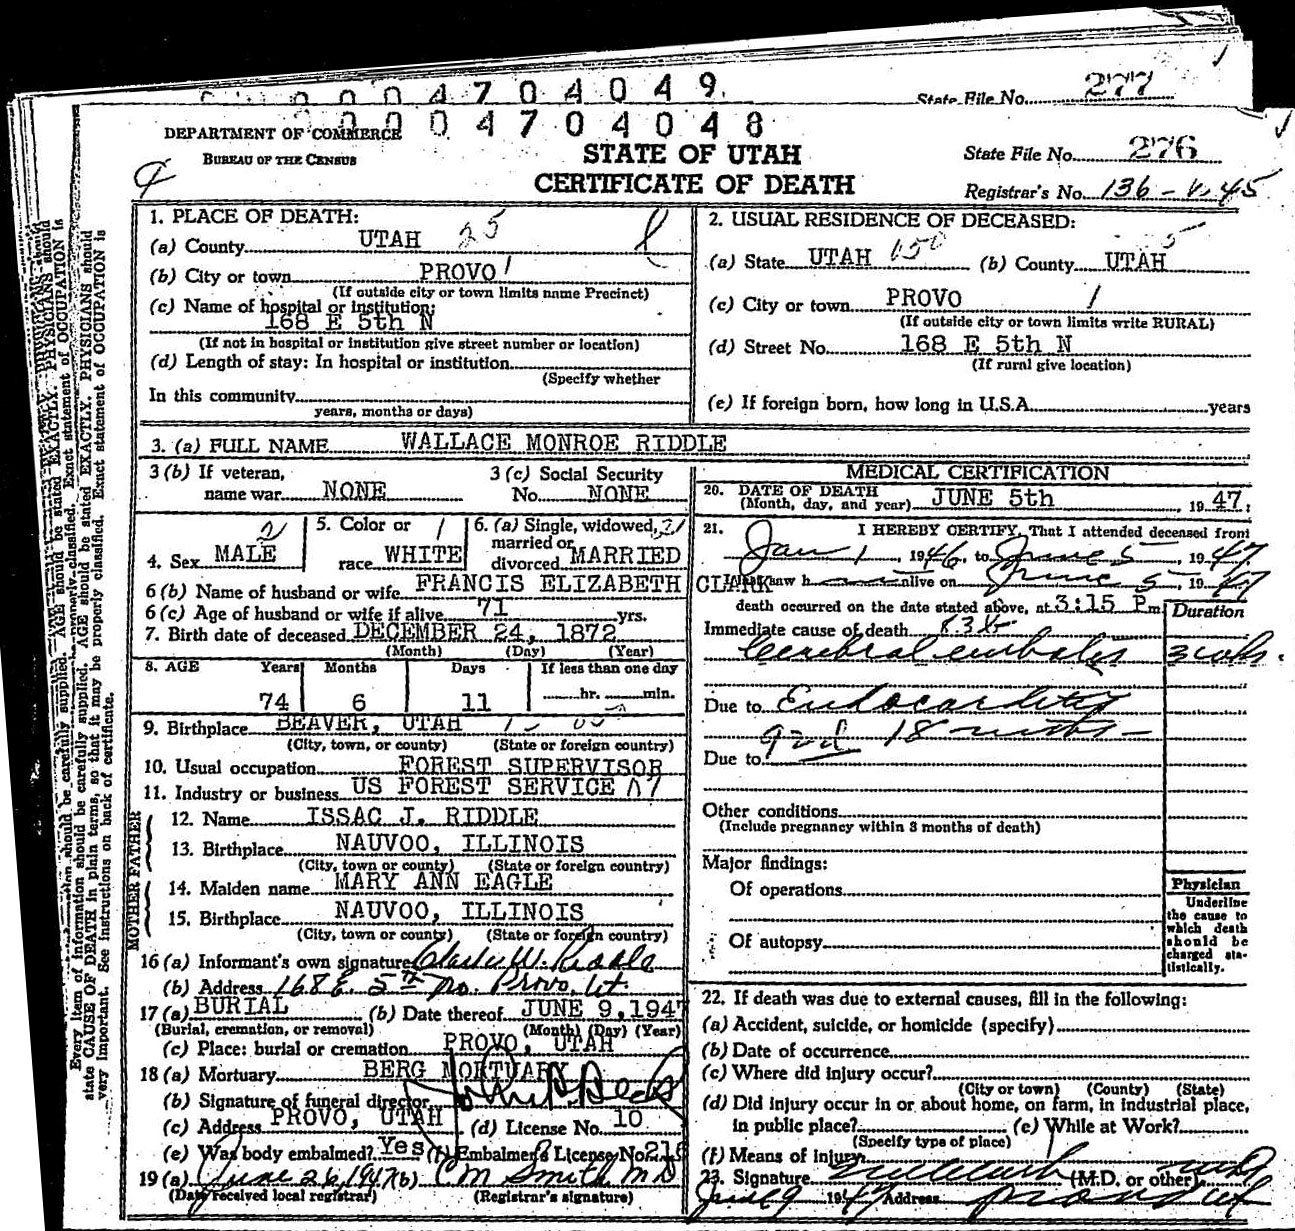 0 0 0 4 7 0 4 0 4 9
State File No. 277
0 0 0 4 7 0 4 0 4 8
DEPARTMENT OF COMMERCE
BUREAU OF THE CENSUS
STATE OF UTAH
CERTIFICATE OF DEATH
State File No. 276
Registrar's No. 136
Every item of information should be carefully supplied. AGE should be stated EXACTLY. PHYSICIANS should
state CAUSE OF DEATH in plain terms, so that it may be properly classified. Exact statement of OCCUPATION is
very important. See instructions on back of certificate.
1. PLACE OF DEATH:
(a) County UTAH 25
(b) City or town PROVO 1
(If outside city or town limits name Precinct)
(c) Name of hospital or institution:
168 E 5th N
(If not in hospital or institution give street number or location)
(d) Length of stay: In hospital or institution
(Specify whether
In this community
years, months or days)
2. USUAL RESIDENCE OF DECEASED:
(a) State UTAH (b) County UTAH 5
(c) City or town PROVO 1
(If outside city or town limits write RURAL)
(d) Street No. 168 E 5th N
(If rural give location)
(e) If foreign born, how long in U.S.A. years
3. (a) FULL NAME WALLACE MONROE RIDDLE
3 (b) If veteran,
name war NONE
3 (c) Social Security
No. NONE
4. Sex MALE 2
5. Color or 1
race WHITE
6. (a) Single, widowed,
married or
divorced MARRIED
6 (b) Name of husband or wife FRANCIS ELIZABETH CLARK
6 (c) Age of husband or wife if alive 71 yrs.
7. Birth date of deceased DECEMBER 24, 1872
(Month) (Day) (Year)
8. AGE Years Months Days If less than one day
74 6 11 hr. min.
9. Birthplace BEAVER, UTAH
(City, town, or county) (State or foreign country)
10. Usual occupation FOREST SUPERVISOR
11. Industry or business US FOREST SERVICE
FATHER
12. Name ISSAC J. RIDDLE
13. Birthplace NAUVOO, ILLINOIS
(City, town or county) (State or foreign country)
MOTHER
14. Maiden name MARY ANN EAGLE
15. Birthplace NAUVOO, ILLINOIS
(City, town or county) (State or foreign country)
16 (a) Informant's own signature W. Riddle
(b) Address 168 E. 5th No. Provo, Ut.
17 (a) BURIAL (b) Date thereof JUNE 9, 1947
(Burial, cremation, or removal) (Month) (Day) (Year)
(c) Place: burial or cremation PROVO, UTAH
18 (a) Mortuary BERG MORTUARY
(b) Signature of funeral director
(c) Address PROVO, UTAH (d) License No. 10
(e) Was body embalmed? Yes (f) Embalmer's License No. 218
19 (a) June 26, 1947 (b) C M Smith M D
(Date received local registrar) (Registrar's signature)
MEDICAL CERTIFICATION
20. DATE OF DEATH
(Month, day, and year) JUNE 5th, 1947.
21. I HEREBY CERTIFY, That I attended deceased from
Jan 1, 1946, to June 5, 1947
I last saw h alive on June 5, 1947
death occurred on the date stated above, at 3:15 P m. Duration
Immediate cause of death
Cerebral embolus
Due to Endocarditis
18 mths
Due to
Other conditions
(Include pregnancy within 3 months of death)
Major findings:
Of operations
Of autopsy
Physician
Underline
the cause to
which death
should be
charged sta-
tistically.
22. If death was due to external causes, fill in the following:
(a) Accident, suicide, or homicide (specify)
(b) Date of occurrence
(c) Where did injury occur?
(City or town) (County) (State)
(d) Did injury occur in or about home, on farm, in industrial place,
in public place? (e) While at Work?
(Specify type of place)
(f) Means of injury
23. Signature (M.D. or other)
June 9 1947 Address Provo Ut